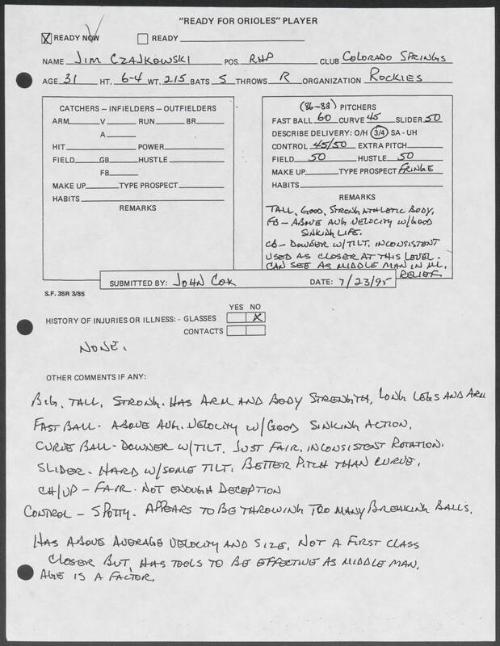 "READY FOR ORIOLES" PLAYER
X READY NOW READY
NAME JIM CZAJKOWSKI POS. RHP CLUB COLORADO SPRINGS
AGE 31 HT. 6-4 WT. 215 BATS S THROWS R ORGANIZATION ROCKIES
CATCHERS - INFIELDERS - OUTFIELDERS
ARM V RUN BR
A
HIT POWER
FIELD GB HUSTLE
FB
MAKE UP TYPE PROSPECT
HABITS
REMARKS
(86-88) PITCHERS
FAST BALL 60 CURVE 45 SLIDER 50
DESCRIBE DELIVERY: O/H 3/4 SA - UH
CONTROL 45/50 EXTRA PITCH
FIELD 50 HUSTLE 50
MAKE UP TYPE PROSPECT FRINGE
HABITS
REMARKS
TALL, GOOD, STRONG ATHLETIC BODY.
FB - ABOVE AVG VELOCITY W/GOOD
SINKING LIFE.
CB - DOWNER W/TILT, INCONSISTENT
USED AS CLOSER AT THIS LEVEL.
CAN SEE AS MIDDLE MAN IN ML.
RELIEF.
SUBMITTED BY: JOHN COX DATE: 7/23/95
S.F. 3SR 3/85
YES NO
HISTORY OF INJURIES OR ILLNESS: - GLASSES X
CONTACTS
NONE.
OTHER COMMENTS IF ANY:
BIG, TALL, STRONG. HAS ARM AND BODY STRENGTH, LONG LEGS AND ARM
FAST BALL - ABOVE AVG. VELOCITY W/GOOD SINKING ACTION.
CURVE BALL - DOWNER W/TILT. JUST FAIR, INCONSISTENT ROTATION.
SLIDER - HARD W/SOME TILT, BETTER PITCH THAN CURVE.
CH/UP - FAIR - NOT ENOUGH DECEPTION
CONTROL - SPOTTY. APPEARS TO BE THROWING TOO MANY BREAKING BALLS.
HAS ABOVE AVERAGE VELOCITY AND SIZE, NOT A FIRST CLASS
CLOSER BUT, HAS TOOLS TO BE EFFECTIVE AS MIDDLE MAN.
AGE IS A FACTOR.